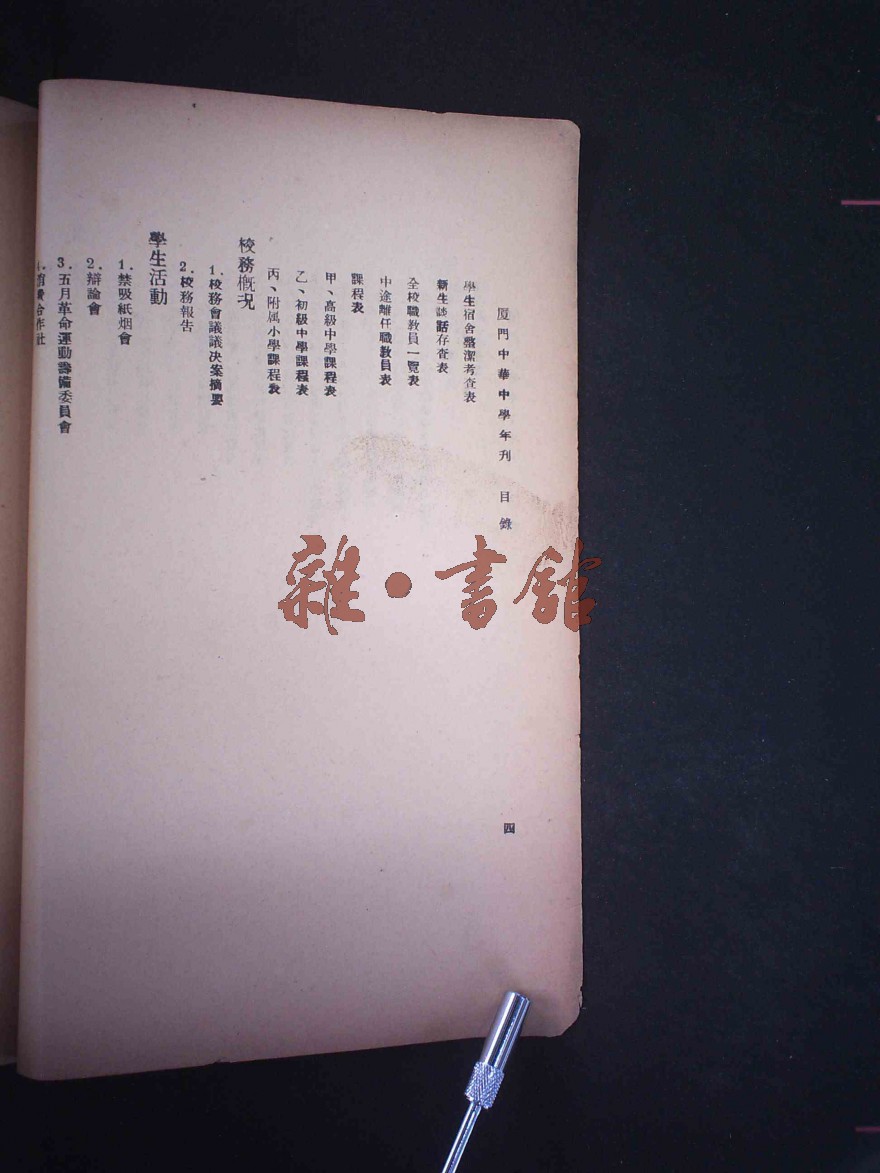 厦門中華中學年刊 目錄
四
學生宿舍整潔考查表
新生談話存查表
全校職教員一覽表
中途離任職教員表
課程表
甲、高級中學課程表
乙、初級中學課程表
丙、附属小學課程表
校務概况
1.校務會議議决案摘要
2.校務報告
學生活動
1.禁吸紙烟會
2.辯論會
3.五月革命運動籌備委員會
4.消費合作社
雜·書舘